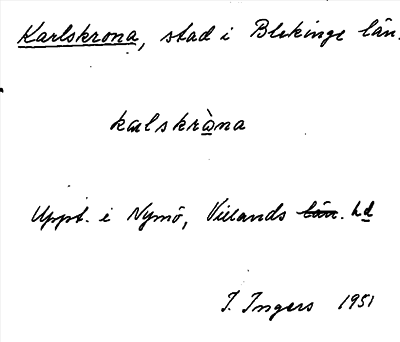 Karlskrona, stad i Blekinge län.
kalskròna
Uppt. i Nymö, Villands län. hd
I. Ingers 1951